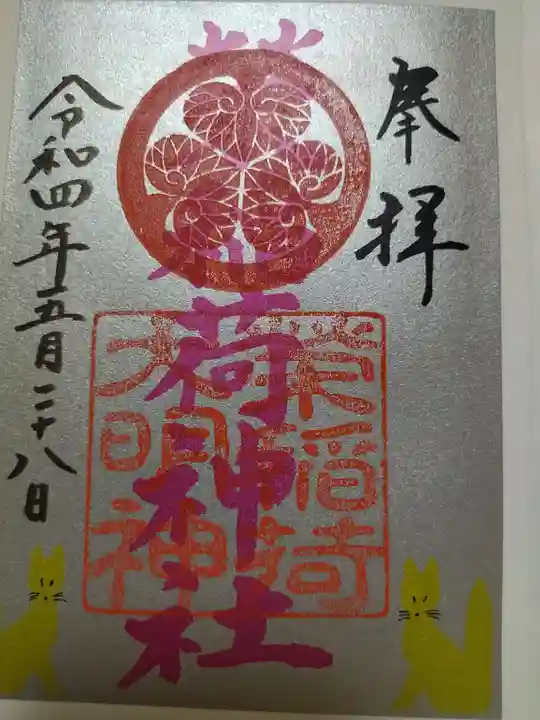 奉拝
稲荷神社
稲荷
大明神
令和四年五月二十八日